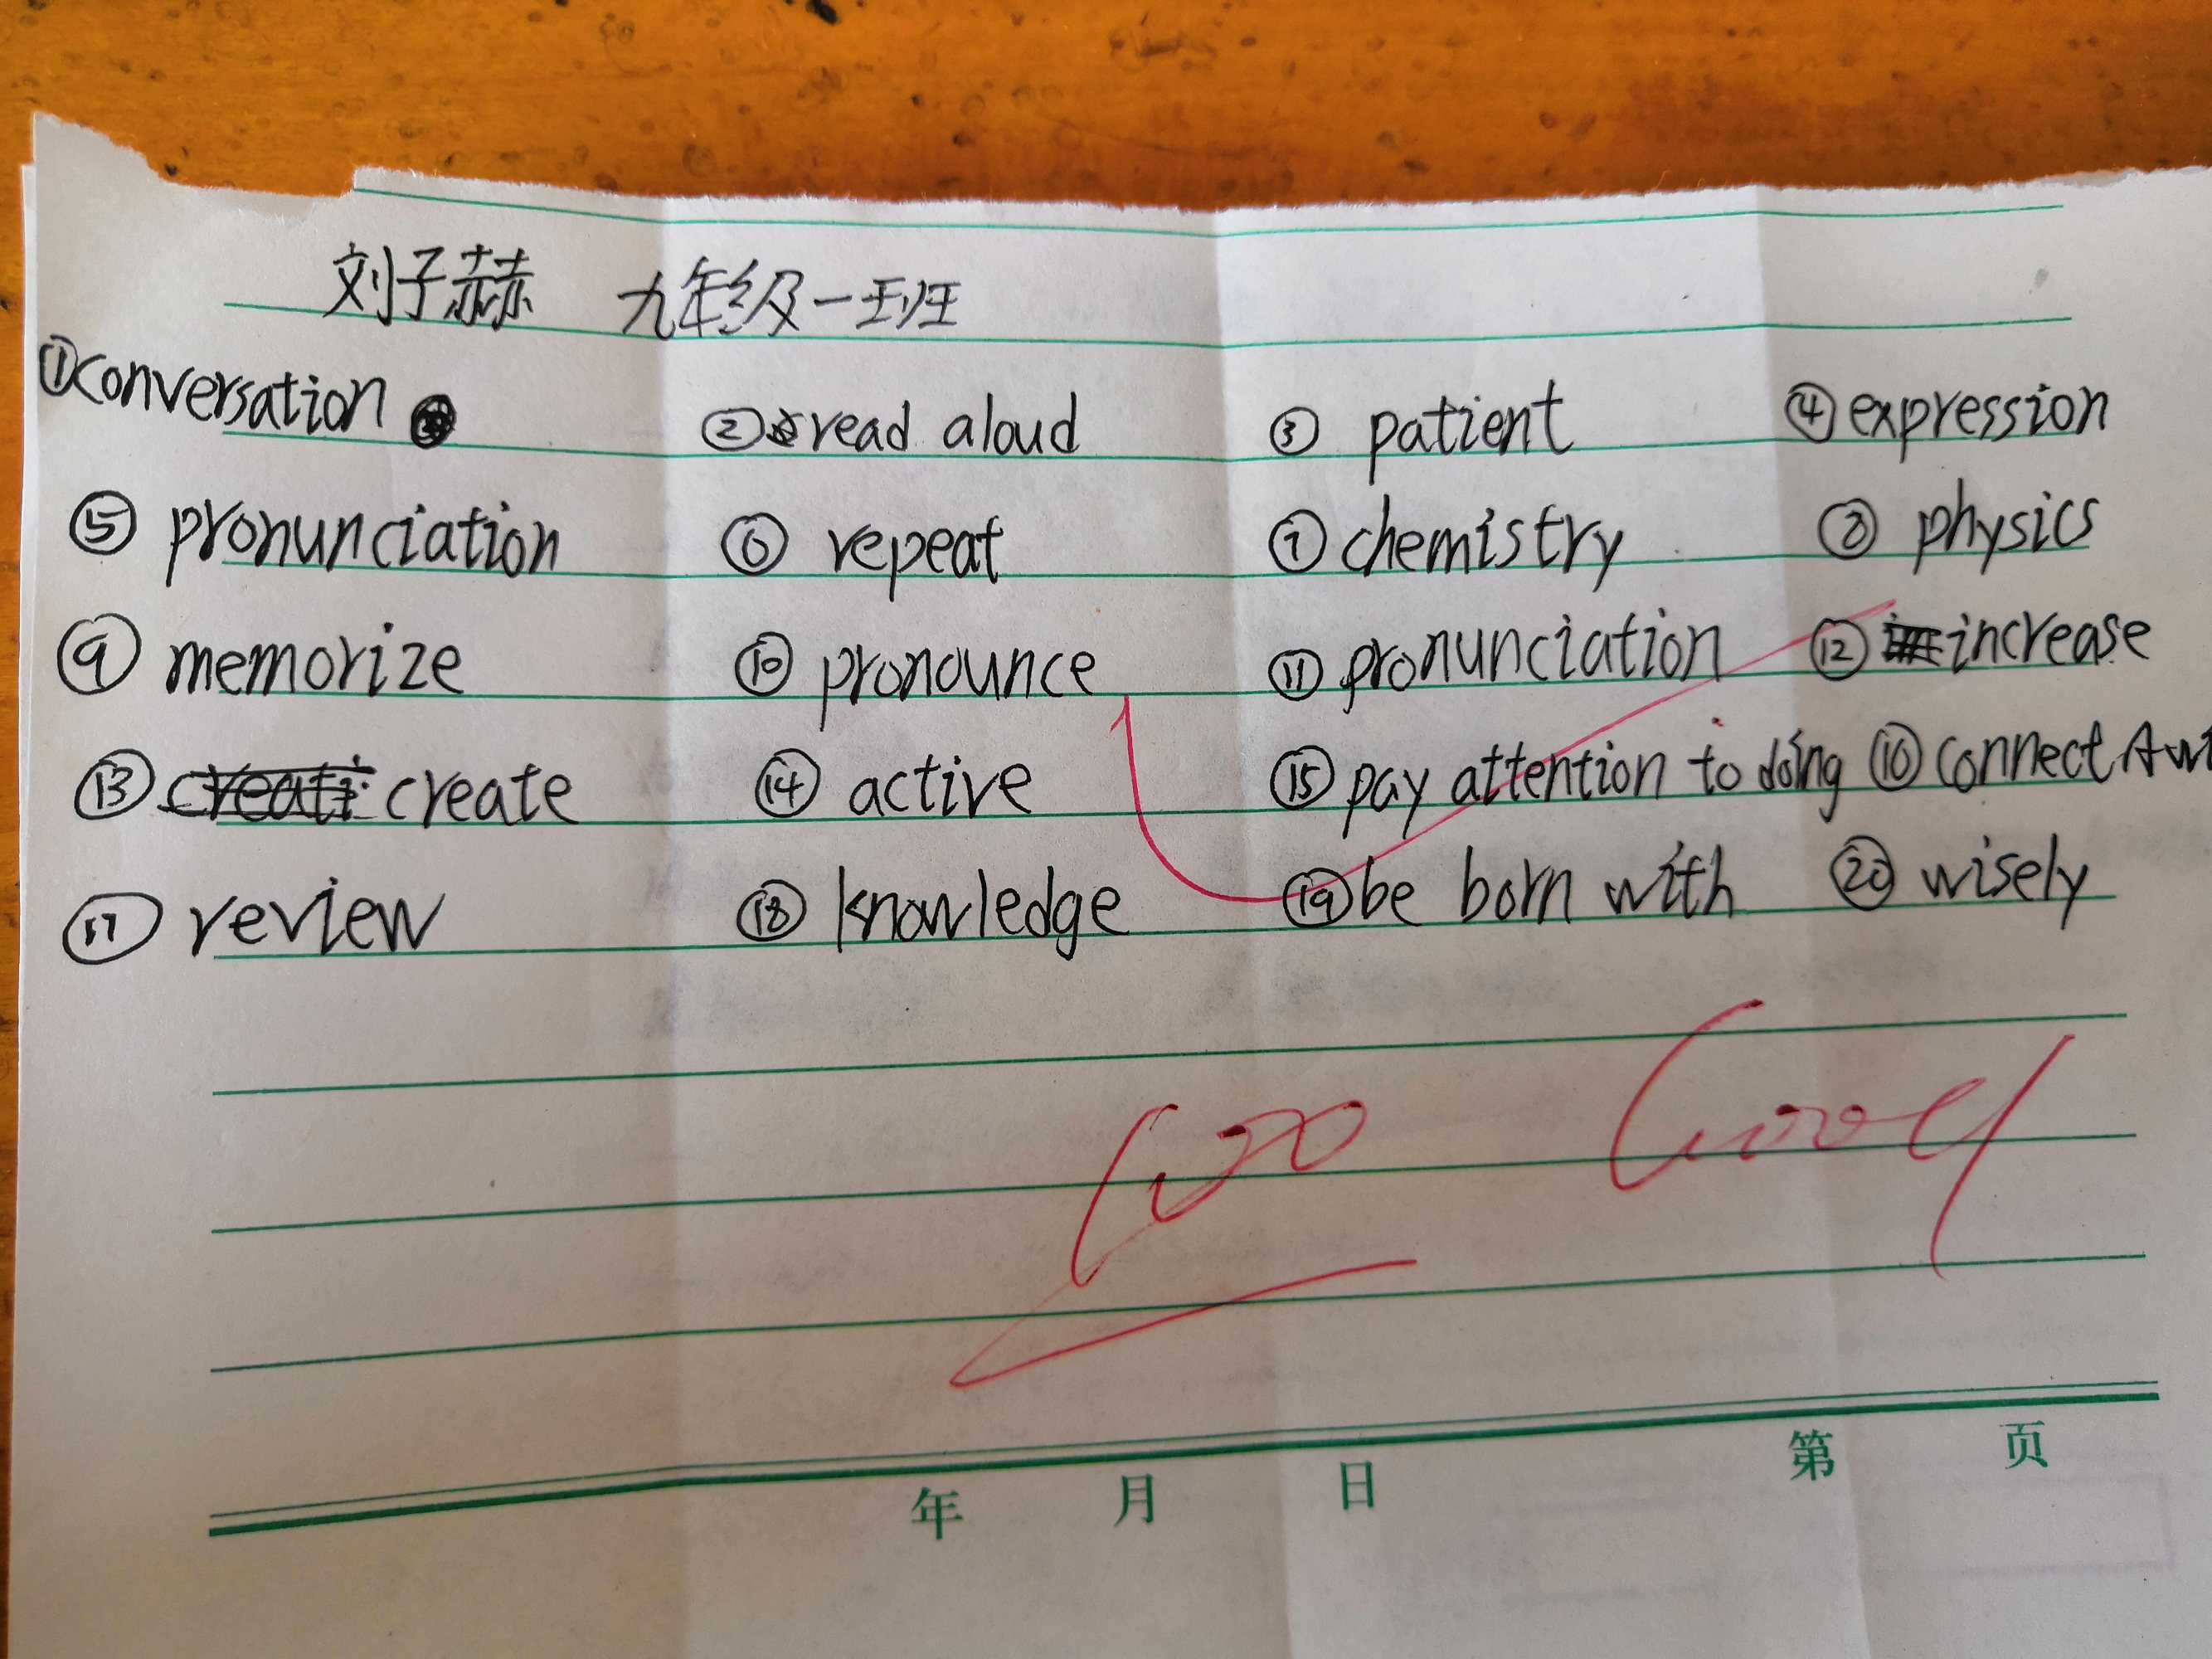 刘子赫 九年级一班
①conversation ②read aloud ③ patient ④expression
⑤ pronunciation ⑥ repeat ⑦ chemistry ⑧ physics
⑨ memorize ⑩ pronounce ⑪ pronunciation ⑫ increase
⑬ creati create ⑭ active ⑮ pay attention to doing ⑯ connect A wi
⑰ review ⑱ knowledge ⑲ be born with ⑳ wisely
100 Good
年 月 日 第 页